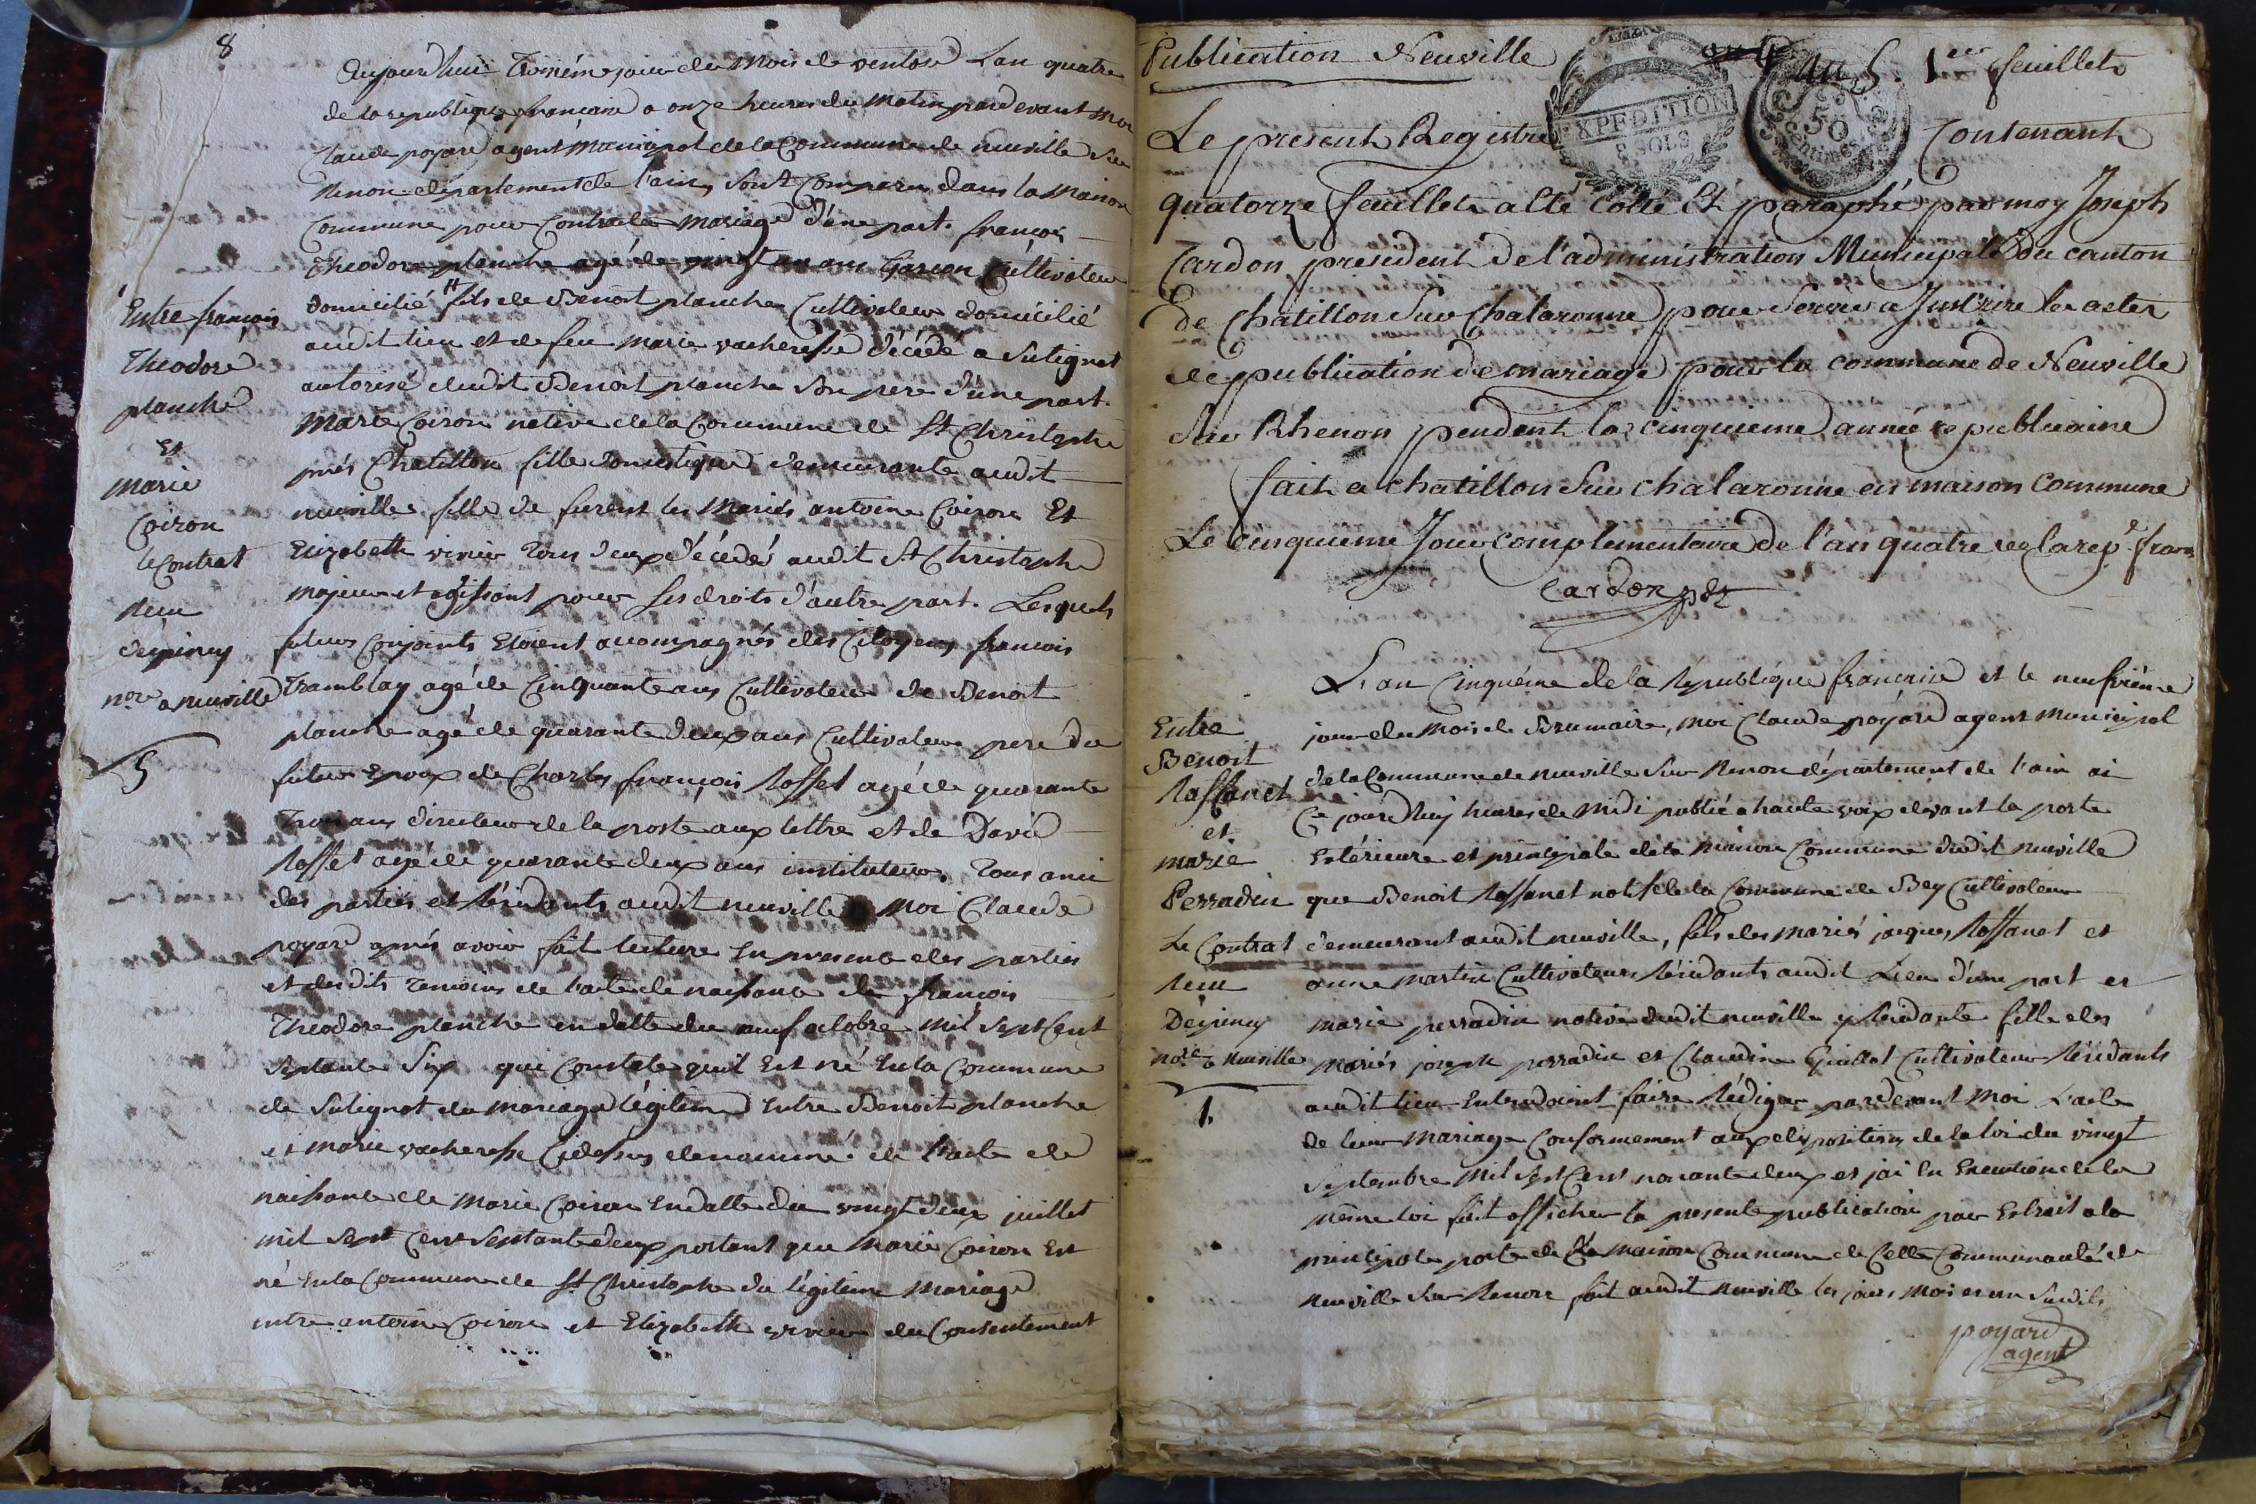 8
Aujourdhui Troisiéme jour du Mois de ventose Lan quatre
de la republique francaise a onze heures du Matin pardevant moi
Claude poyard agent Municipal de la Commune de neuville sur
Renon departement de l'ain, sont Comparu dans la Maison
Commune pour Contracter Mariage d'une part. françois
Theodore planche agé de vingt un ans Garcon Cultivateur
domicilié fils de Benoit planche Cultivateur domicilié
audit lieu et de feu Marie vacheresse décédé a Sulignat
autorisé dudit Benoit planche son pere d'une part.
Marie Coiron native de la Commune de St Christophe
prés Chatillon fille domestique demeurante audit
neuville fille de furent les Mariés antoine Coiron Et
Elizabeth vivier Tous deux décédés audit St Christophe
majeure et agissant pour ses droits d'autre part. Lesquels
futurs Conjoints Etoient accompagnés des Citoyens francois
Tramblay agé de Cinquante ans Cultivateur de Benoit
planche agé de quarante deux ans Cultivateur pere du
futur Epoux de Charles françois Roffet agé de quarante
Trois ans directeur de la poste aux lettre et de David
Roffet agé de quarante deux ans instituteur. Tous amis
des parties et Résidants audit neuville Moi Claude
poyard aprés avoir fait lecture En presence des parties
et desdits Temoins de lacte de naissance de francois
Theodore planche en datte du neuf octobre Mil Sept Cent
Septante Six qui Constate quil Est né En la Commune
de Sulignat du Mariage légitime Entre Benoit planche
et Marie vacheresse Cidessus denommé de lacte de
naissance de Marie Coiron En datte du vingt deux juillet
mil Sept Cent Septante deux portant que Marie Coiron Est
né En la Commune de St Christophe du légitime Mariage
entre antoine Coiron et Elizabeth vivier du Consentement
Entre francois
Theodore
planche
Et
marie
Coiron
le Contrat
Reçu
dépiney
nore a neuville
5
Publication Neuville
EXPEDITION
5 SOLS
50
Centimes
an 5. 1er feuillet
Le present Registre Contenant
quatorze feuillets a été Cotté Et paraphé par moy Joseph
Cardon president de l'administration Municipale du canton
De Chatillon Sur Chalaronne pour Servir a Inscrire les actes
de publication de mariage pour la commune de Neuville
Sur Rhenon pendant la cinquieme année republicaine
fait a chatillon Sur chalaronne en maison Commune
Le cinquieme Jour complementaire de l'an quatre de la rep.e franc
Cardon pdt
L'an Cinquéme de la République francaise et le neufviéme
jour du Mois de Brumaire, Moi Claude poyard agent Municipal
de la Commune de neuville Sur Renon département de l'ain ai
Ce jourdhuy heures de Midi publié a haute voix devant la porte
Extérieure et principale de la Maison Commune dudit neuville
que Benoit Raffanet natif de la Commune de Bey Cultivateur
demeurant audit neuville, fils des Mariés jacques Raffanet et
anne Martin Cultivateurs Résidants audit Lieu d'une part et
Marie perradin native dudit neuville y Résidante fille des
Mariés joseph perradin et Claudine Guillot Cultivateurs Résidants
audit lieu Entendoient faire Rédiger pardevant Moi Lacte
de leur Mariage Conformement aux dispositions de la loi du vingt
Septembre Mil Sept Cent nonante deux et jai En Execution de la
même loi fait afficher la presente publication par Extrait a la
principale porte de la Maison Commune de Cette Communauté de
neuville Sur Renon fait audit neuville les jours Mois et an Susdits
poyard
agent
Entre
Benoit
Raffanet
et
marie
Perradin
Le Contrat
Reçu
Dépiney
nore a neuville
1.